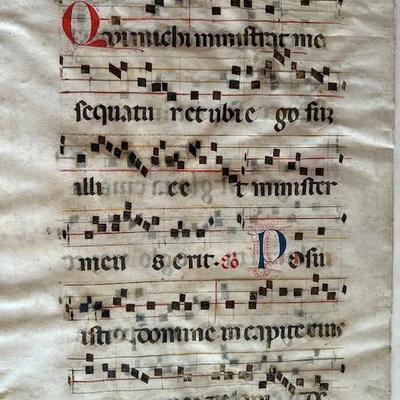 Qui michi ministrat me
sequatu r et ubi e go suz
illi c e t minister
meu s erit. Posu
isti domine in capite eius